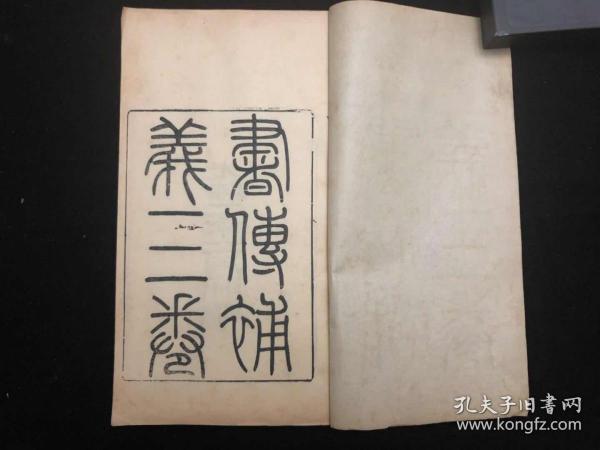 書傳補
義三卷
孔夫子旧書网
www.kongfz.com